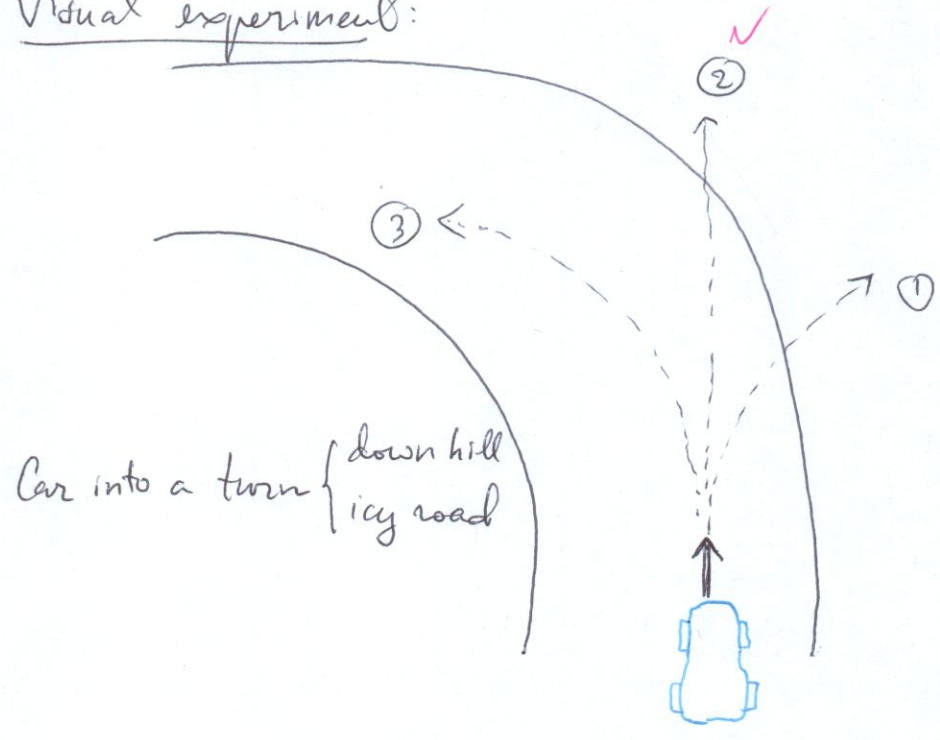 Visual experiment:
②
③
①
Car into a turn { down hill
icy road